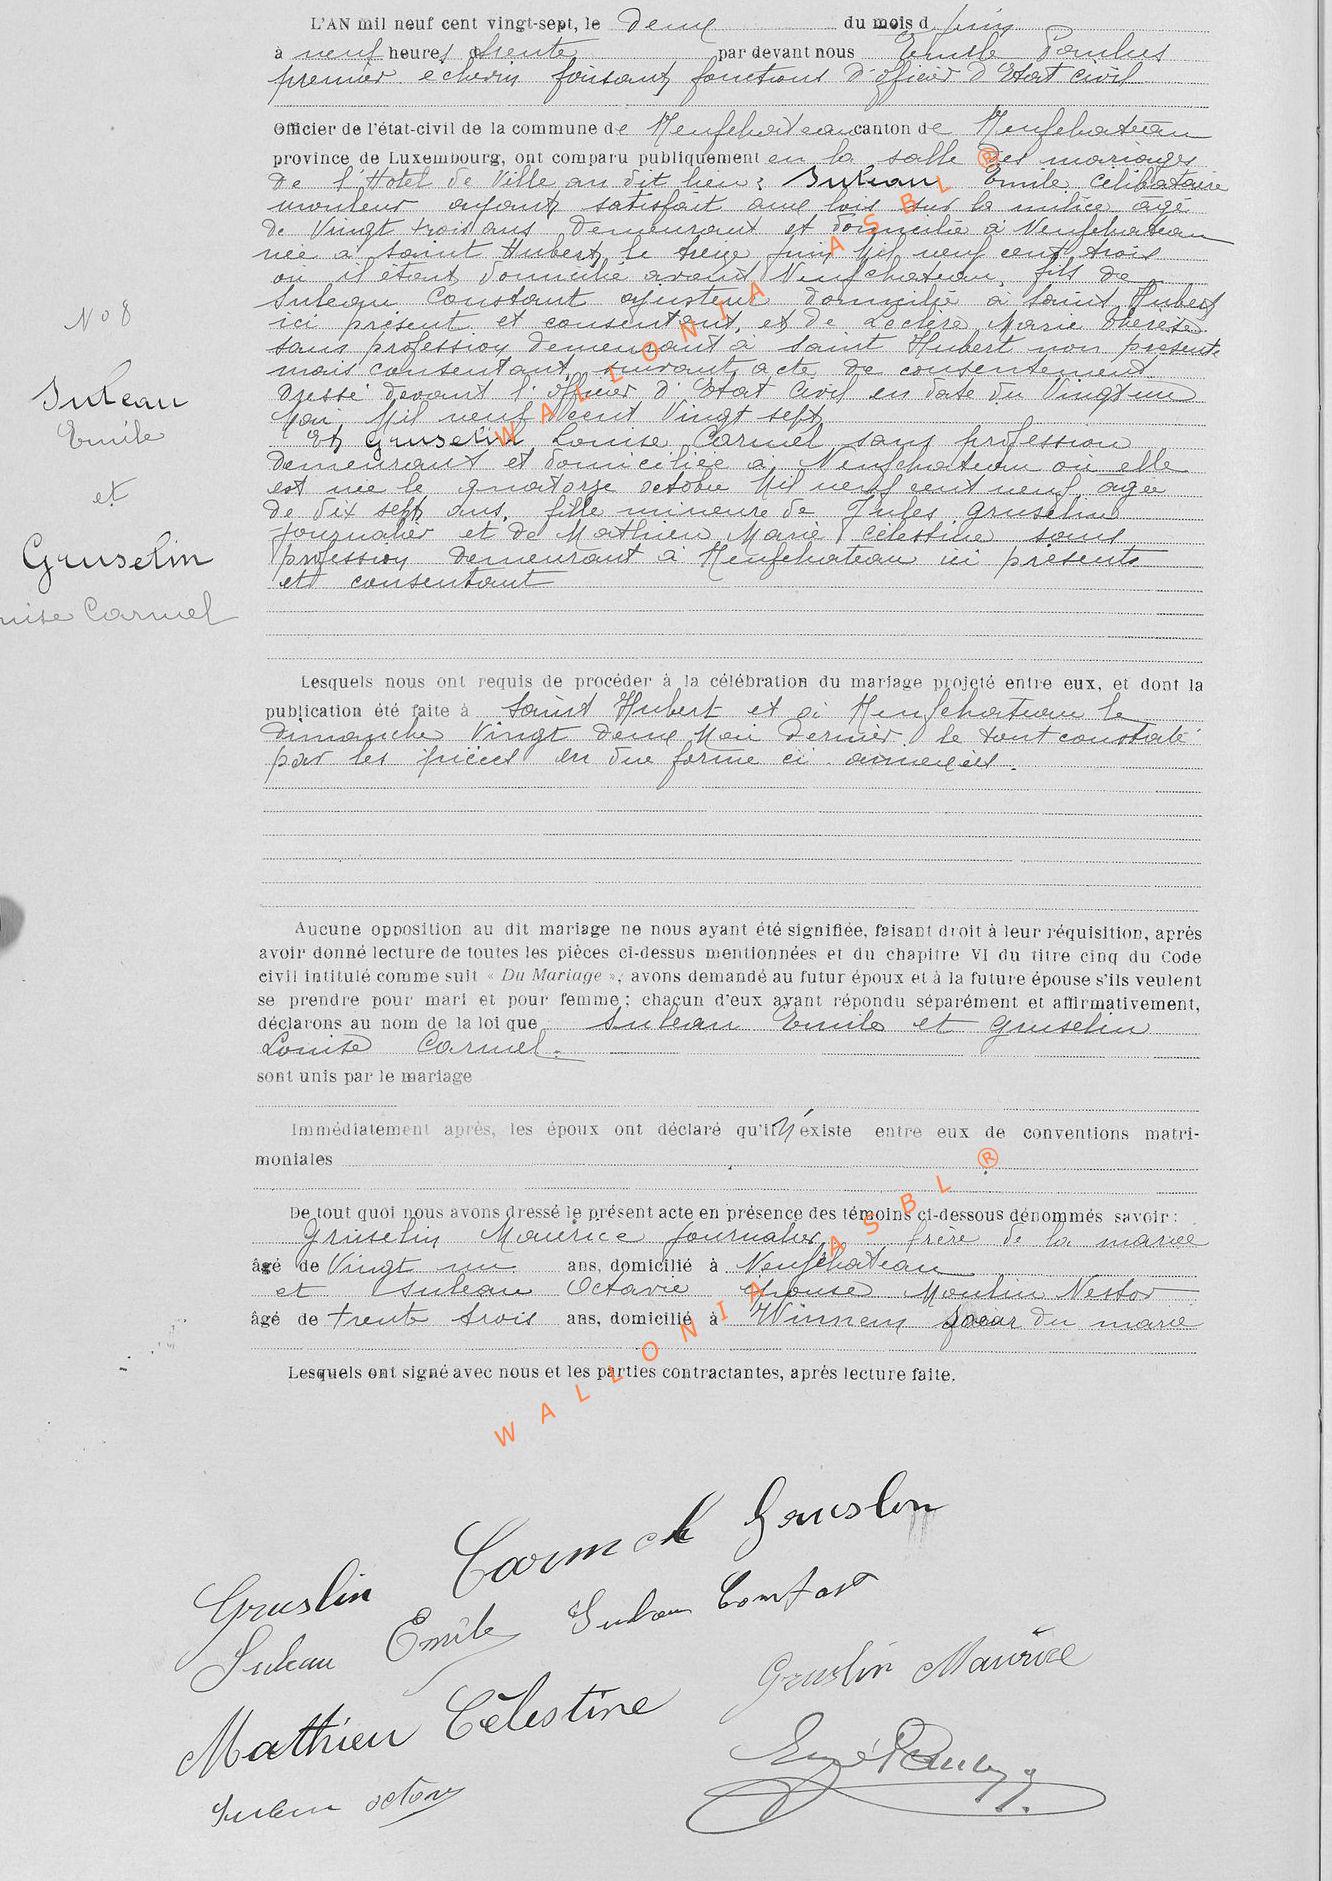 L'AN mil neuf cent vingt-sept, le deux du mois d juin
à neuf heures trente par devant nous Emile Paulus
premier échevin faisant fonctions d'officier d'Etat civil
Officier de l'état-civil de la commune de Neufchateau canton de Neufchateau
province de Luxembourg, ont comparu publiquement en la salle des mariages
de l'Hotel de Ville au dit lieu : Suleau Emile célibataire
mouleur ayant satisfait aux lois sur la milice agé
de Vingt trois ans demeurant et domicilié à Neufchateau
née à Saint Hubert le treize juin Mil neuf cent trois
où il étant domicilié avant Neufchateau, fils de
Suleau Constant ajusteur domicilié à Saint Hubert
ici présent et consentant, et de Leclère Marie Thérèse
sans profession demeurant à Saint Hubert non présente
mais consentant, suivant acte de consentement
dressé devant l'officier d'Etat Civil en date du Vingt un
Mai Mil neuf cent Vingt sept
Et Gruselin Louise Carmel sans profession
demeurant et domiciliée à Neufchateau où elle
est née le quatorze octobre Mil neuf cent neuf, agée
de dix sept ans, fille mineure de Jules Gruselin
journalier et de Mathieu Marie Célestine sans
profession demeurant à Neufchateau ici présents
et consentant
No 8
Suleau
Emile
et
Gruselin
Carmel
Lesquels nous ont requis de procéder à la célébration du mariage projeté entre eux, et dont la
publication été faite à Saint Hubert et à Neufchateau le
Dimanche Vingt deux Mai dernier, le tout constaté
par les pièces en due forme ci-annexées.
Aucune opposition au dit mariage ne nous ayant été signifiée, faisant droit à leur réquisition, après
avoir donné lecture de toutes les pièces ci-dessus mentionnées et du chapitre VI du titre cinq du Code
civil intitulé comme suit « Du Mariage », avons demandé au futur époux et à la future épouse s'ils veulent
se prendre pour mari et pour femme ; chacun d'eux ayant répondu séparément et affirmativement,
déclarons au nom de la loi que Suleau Emile et Gruselin
Louise Carmel.
sont unis par le mariage
Immédiatement après, les époux ont déclaré qu'il N'existe entre eux de conventions matri-
moniales
De tout quoi nous avons dressé le présent acte en présence des témoins ci-dessous dénommés savoir :
Gruselin Maurice journalier frère de la mariée
âgé de Vingt un ans, domicilié à Neufchateau
et Suleau Octavie épouse Moulin Nestor
âgé de trente trois ans, domicilié à soeur du marié
Lesquels ont signé avec nous et les parties contractantes, après lecture faite.
Gruslin Carmel Gruslin
Suleau Emile Suleau Constant
Gruslin Maurice
Mathieu Célestine
Suleau octavie
WALLONIA ASBL ®
WALLONIA ASBL ®